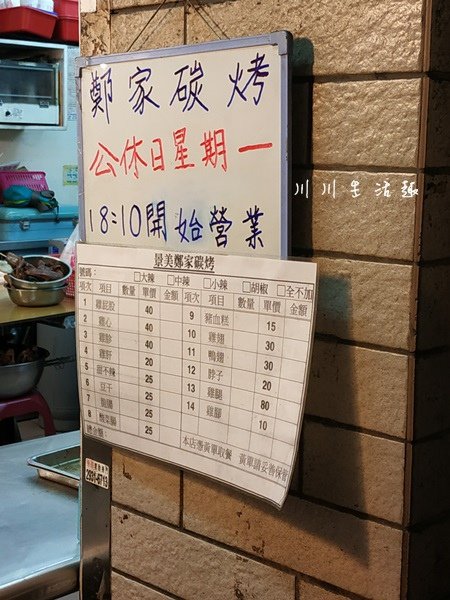 鄭家碳烤
公休日星期一
18:10開始營業
川川生活趣
景美鄭家碳烤
號碼: □大辣 □中辣 □小辣 □胡椒 □全不加
項次 項目 數量 單價 金額 項次 項目 數量 單價 金額
1 雞屁股 40 9 豬血糕 15
2 雞心 40 10 雞翅 30
3 雞胗 40 11 鴨翅 30
4 雞肝 20 12 脖子 20
5 甜不辣 25 13 雞腿 80
6 豆干 25 14 雞腳 10
7 25
8 25
總金額: 本店憑黃單取餐 黃單請妥善保管
2931-5713